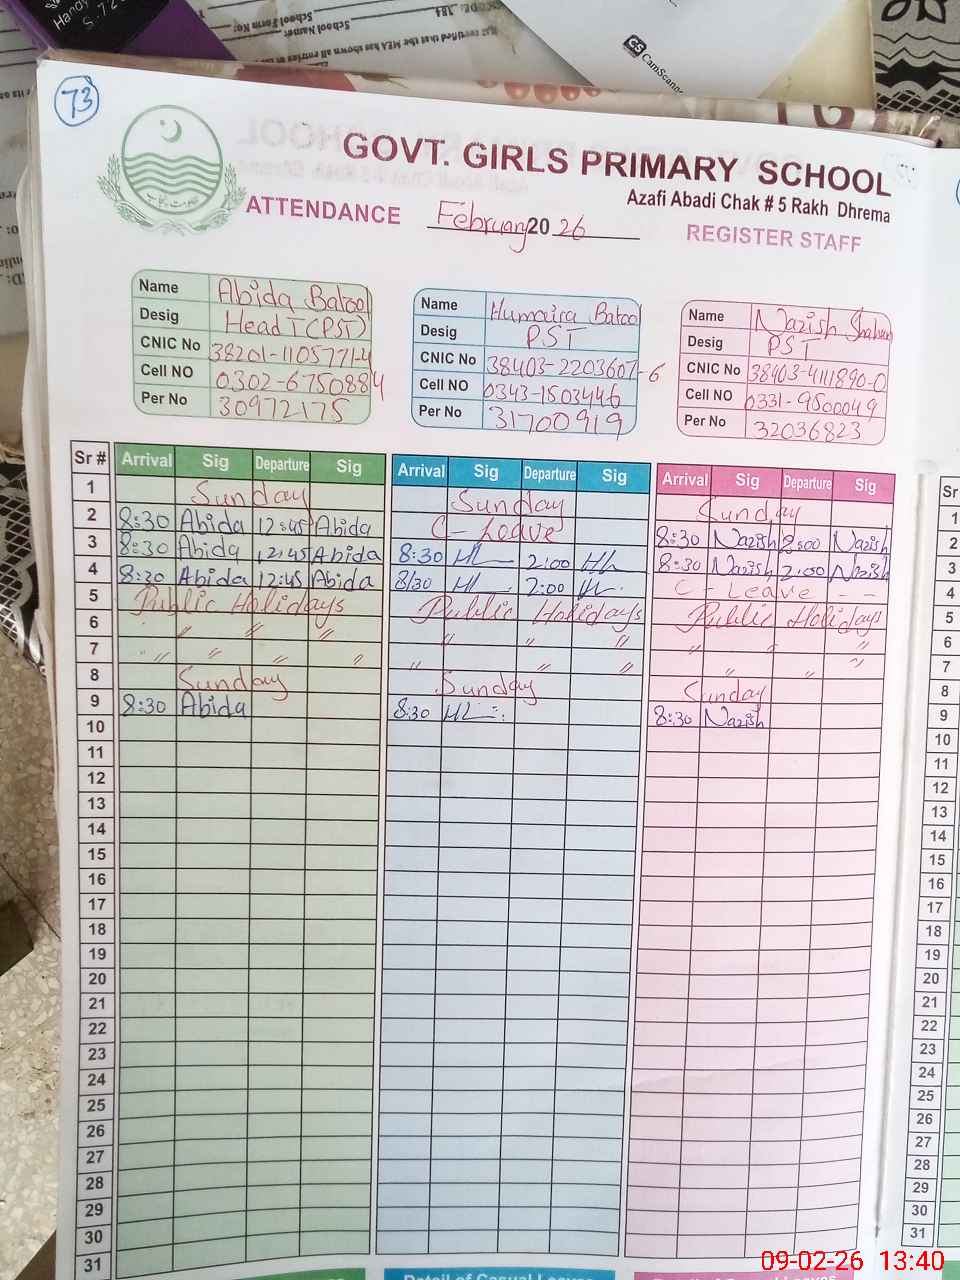 73
GOVT. GIRLS PRIMARY SCHOOL
Azafi Abadi Chak # 5 Rakh Dhrema
ATTENDANCE February 20 26 REGISTER STAFF
Name Abida Batool
Desig Head T (PST)
CNIC No 38201-1105771-4
Cell NO 0302-6750884
Per No 30972175
Name Humaira Batool
Desig PST
CNIC No 38403-2203607-6
Cell NO 0343-1503446
Per No 31700919
Name Nazish Shaheen
Desig PST
CNIC No 38403-4111890-0
Cell NO 0331-9500049
Per No 32036823
Sr # Arrival Sig Departure Sig Arrival Sig Departure Sig Arrival Sig Departure Sig Sr
1 Sunday Sunday Sunday 1
2 8:30 Abida 12:45 Abida C-Leave 8:30 Nazish 2:00 Nazish 2
3 8:30 Abida 12:45 Abida 8:30 HL 2:00 HL 8:30 Nazish 2:00 Nazish 3
4 8:30 Abida 12:45 Abida 8/30 HL 2:00 HL C-Leave - - 4
5 Public Holidays Public Holidays Public Holidays 5
6 " " " " " " " " 6
7 " " " " " " " " " 7
8 Sunday Sunday Sunday 8
9 8:30 Abida 8:30 HL 8:30 Nazish 9
10 10
11 11
12 12
13 13
14 14
15 15
16 16
17 17
18 18
19 19
20 20
21 21
22 22
23 23
24 24
25 25
26 26
27 27
28 28
29 29
30 30
31 31
Detail of Casual Leaves
CS CamScanner
09-02-26 13:40